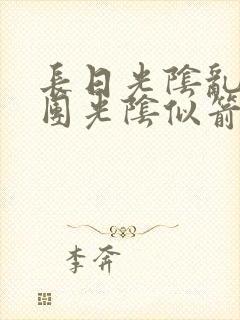 長日光陰亂
園光陰似箭
李奔